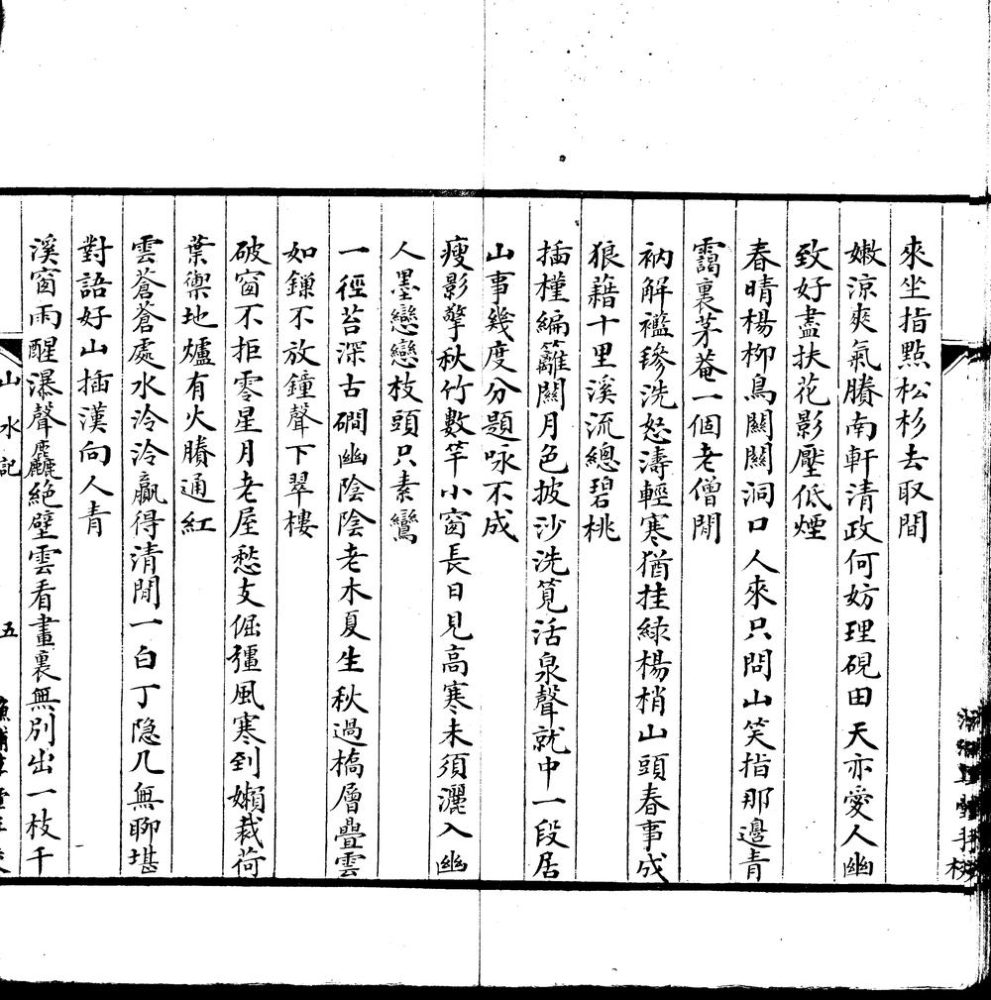 來坐指點松杉去取閒
嫩涼爽氣賸南軒清政何妨理硯田天亦愛人幽
致好盡扶花影壓低煙
春晴楊柳鳥關關洞口人來只問山笑指那邊青
靄裏茅菴一個老僧閒
衲解襤縿洗怒濤輕寒猶挂綠楊梢山頭春事成
狼藉十里溪流總碧桃
插槿編籬關月色披沙洗筧活泉聲就中一段居
山事幾度分題咏不成
瘦影擎秋竹數竿小窗長日見高寒未須灑入幽
人墨戀戀枝頭只素鸞
一徑苔深古磵幽陰陰老木夏生秋過橋層疊雲
如鏁不放鐘聲下翠樓
破窗不拒零星月老屋愁支倔彊風寒到嬾裁荷
葉禦地爐有火賸通紅
雲蒼蒼處水泠泠贏得清閒一白丁隱几無聊堪
對語好山插漢向人青
溪窗雨醒瀑聲麤絕壁雲看畫裏無別出一枝千
山水記
五